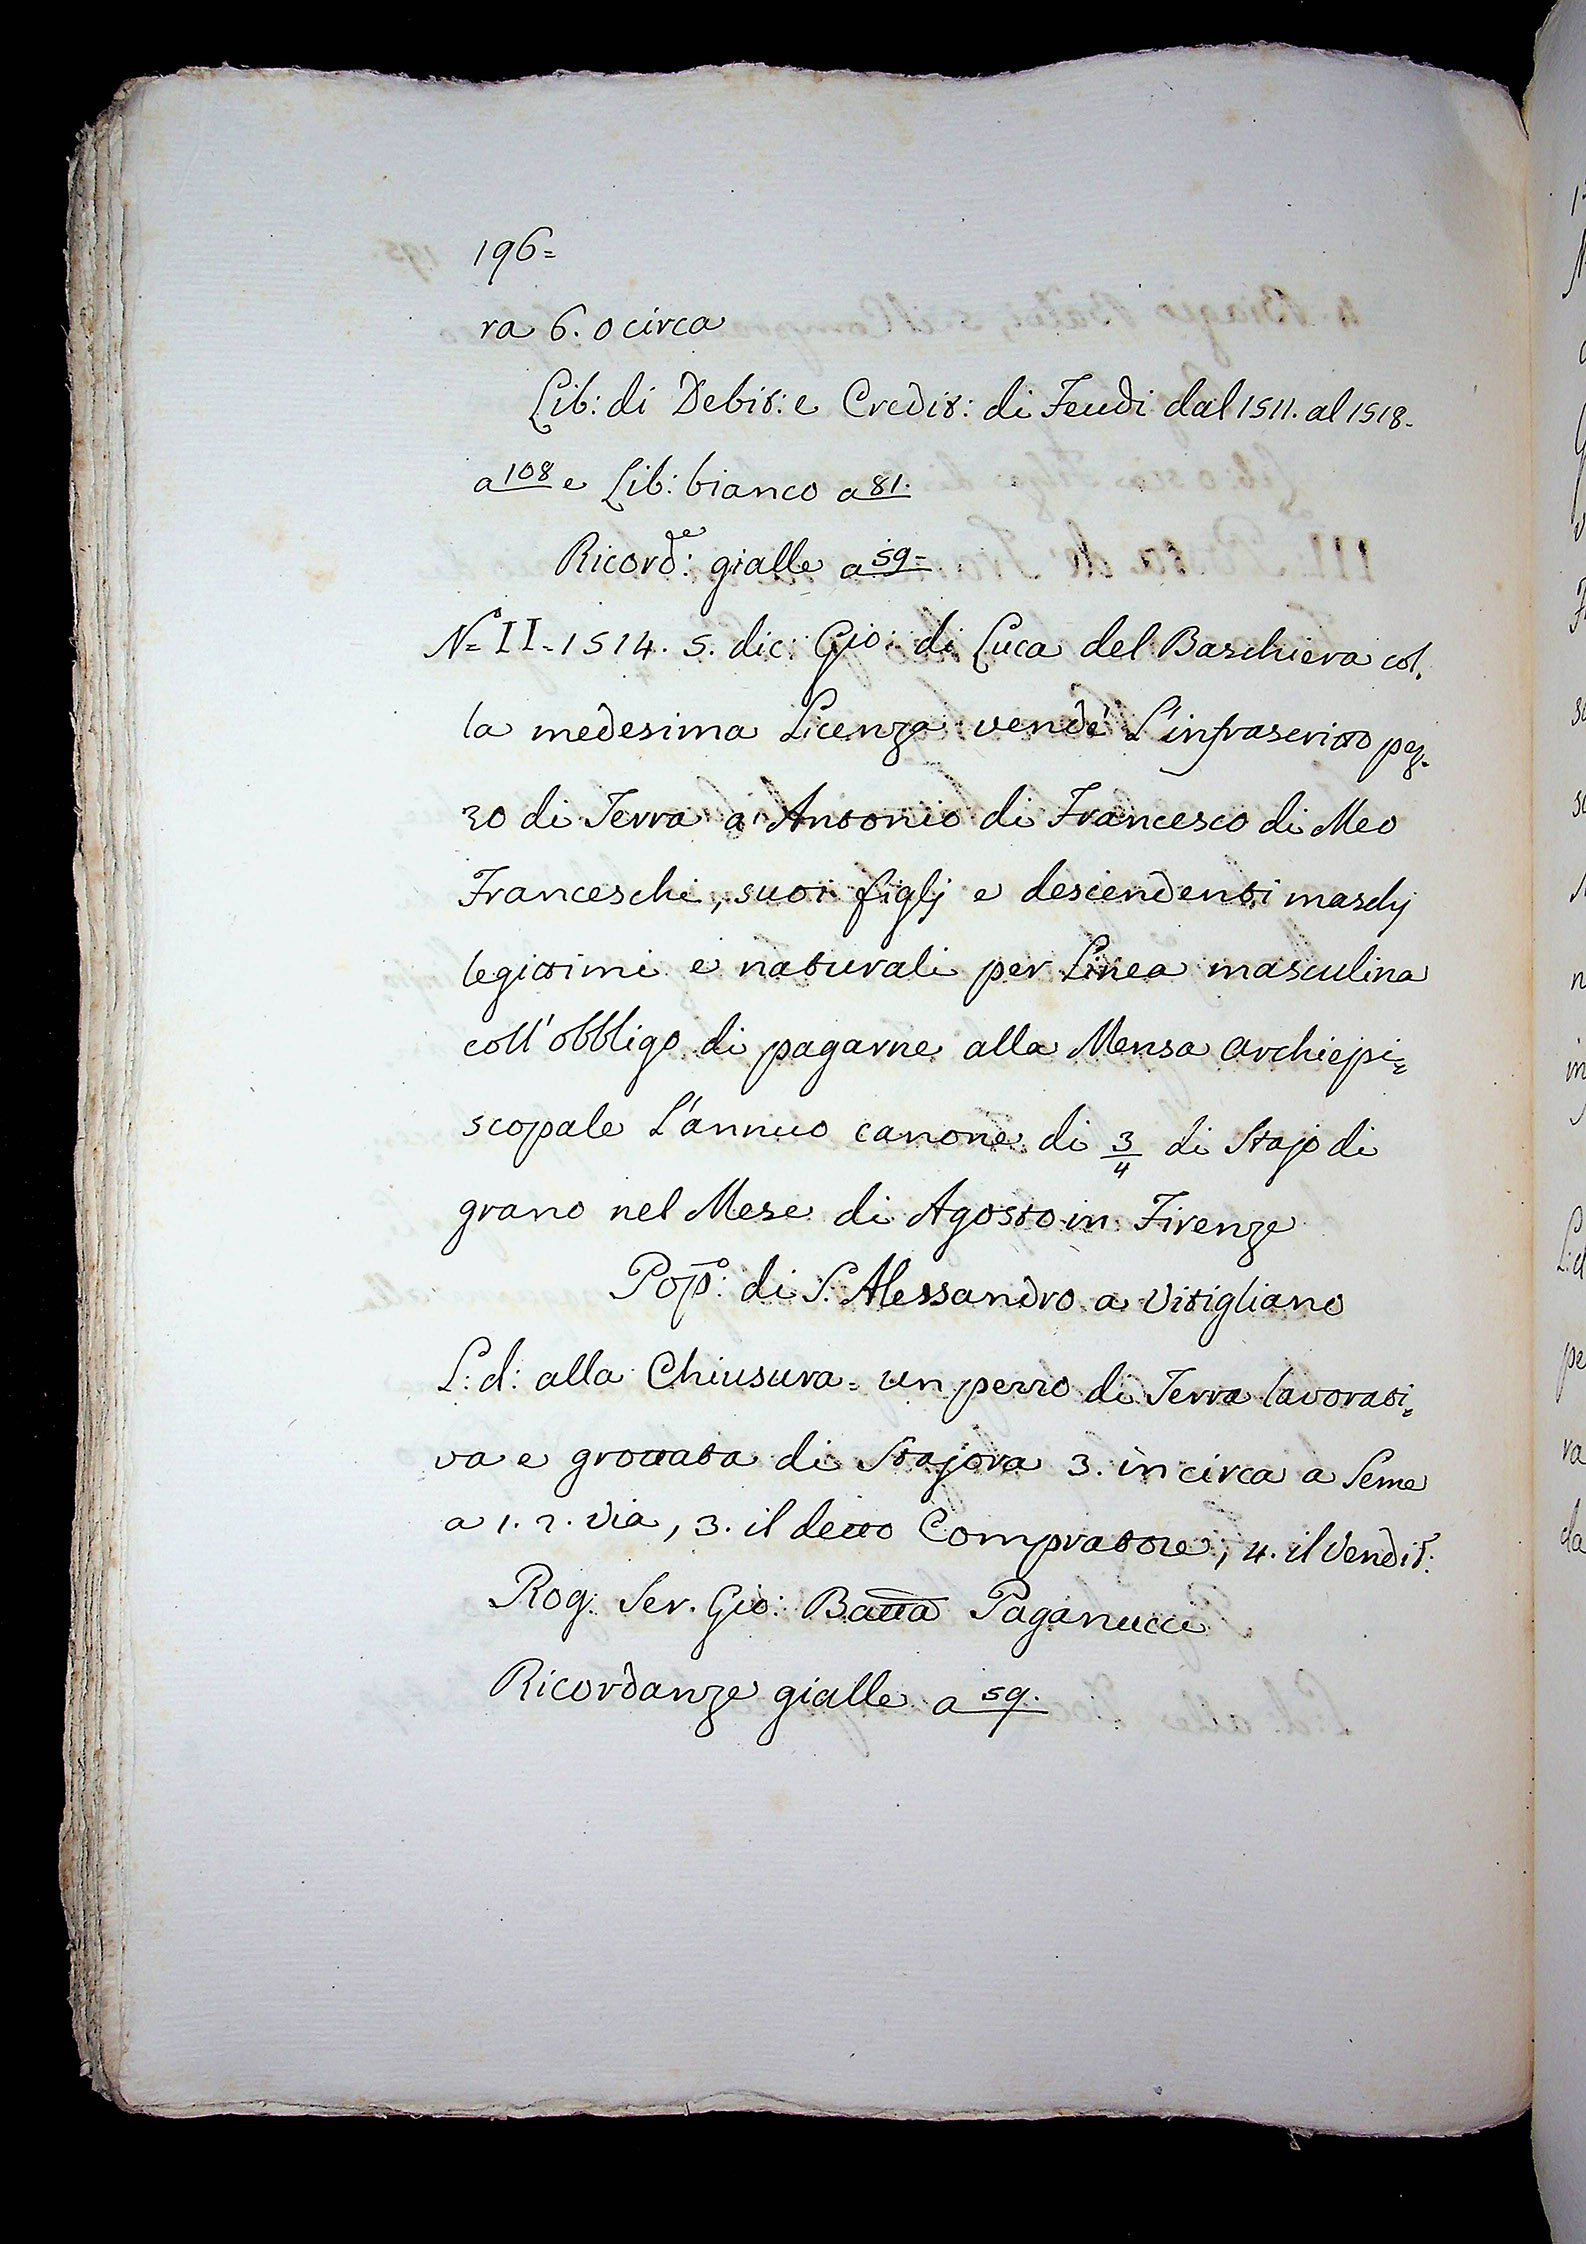 196=
ra 6. o circa
Lib: di Debit: e Credit: di Feudi dal 1511. al 1518.
a 108 e Lib: bianco a 81.
Ricord.e: gialle a 59=
N.= II. 1514. 5. dic: Gio: di Luca del Baschiera col,
la medesima Licenza vendé L'infrascritto pez,
zo di Terra a Antonio di Francesco di Meo
Franceschi, suoi figlj e descendenti maschj
legittimi e naturali per Linea masculina
coll'obbligo di pagarne alla Mensa archiepi=
scopale L'annuo canone di 3/4 di Stajo di
grano nel Mese di Agosto in Firenze
Pop.o: di S. Alessandro a Vitigliano
L: d: alla Chiusura= un pezzo di Terra lavorati=
va e grottata di Stajora 3. in circa a Seme
a 1. 2. via, 3. il detto Compratore, 4. il Vendit:
Rog: Ser. Gio: Batta Paganucci
Ricordanze gialle a 59.